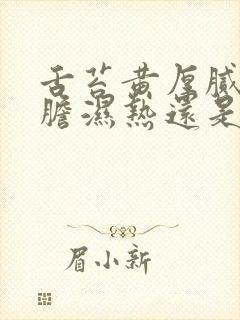 舌苔黄厚膩
膽濕熱還是
眉小新